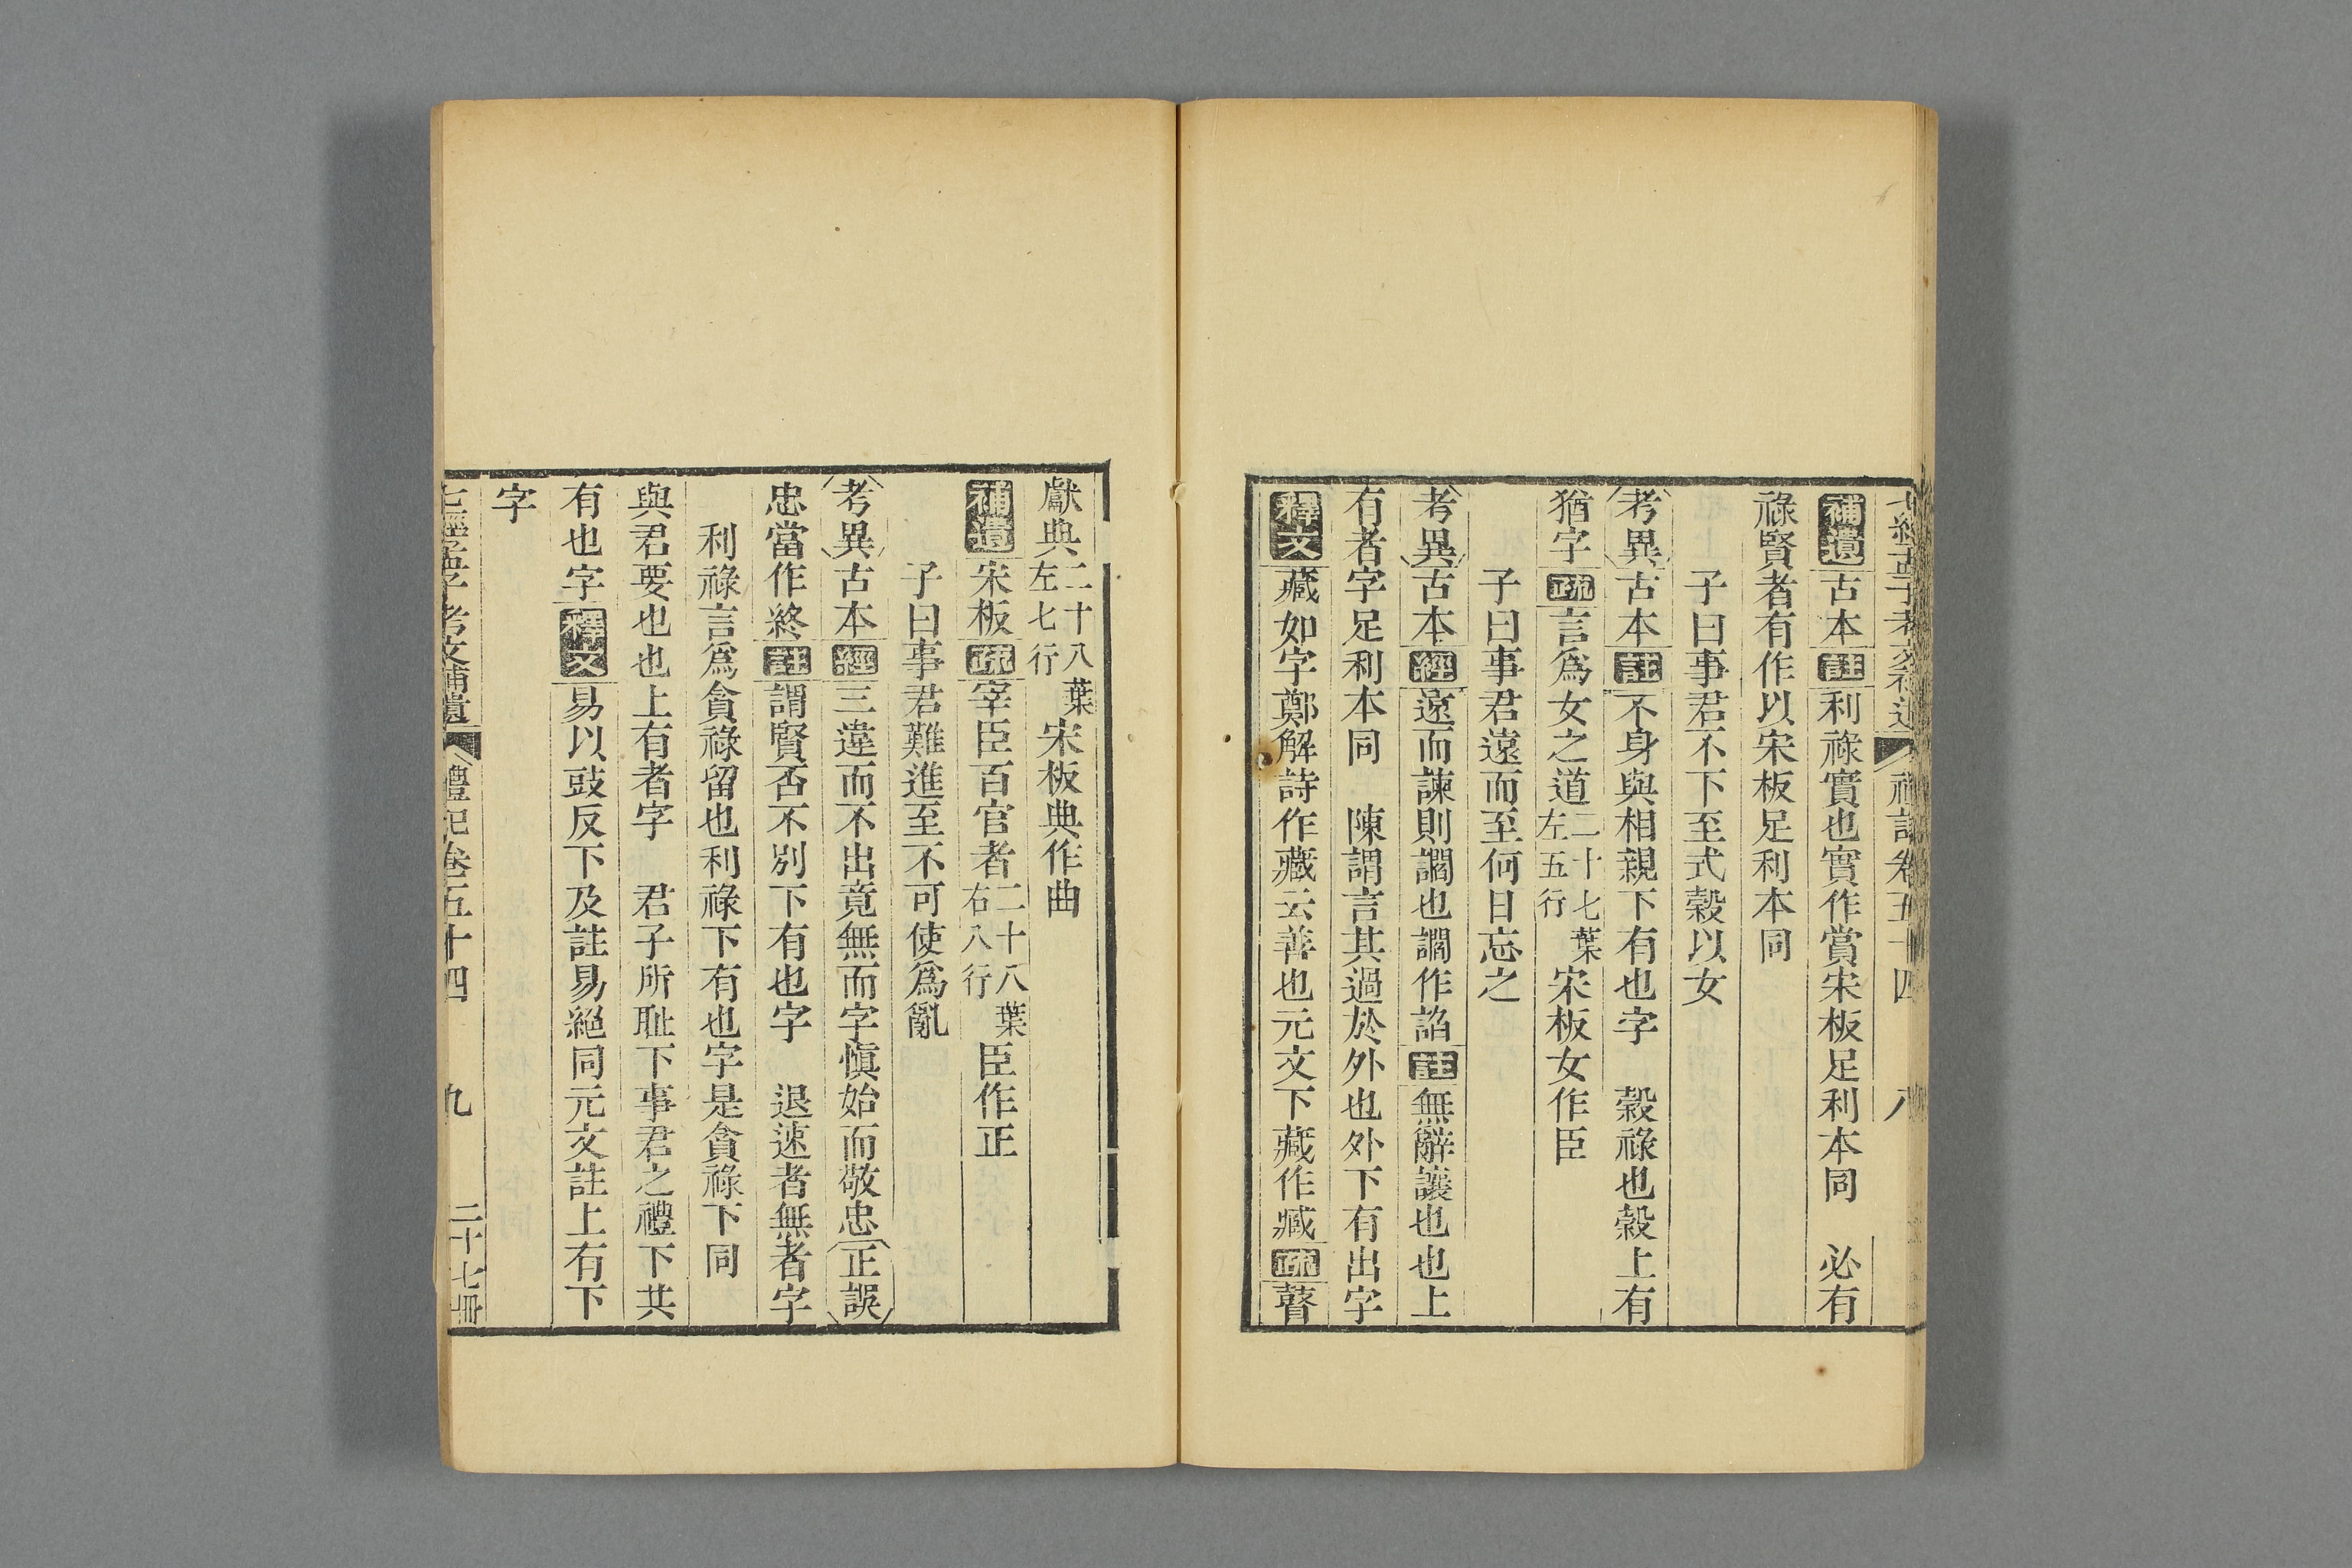 七經孟子考文補遺 禮記卷五十四 八
補遺古本註利祿實也實作賞宋板足利本同 必有
祿賢者有作以宋板足利本同
子曰事君不下至式穀以女
考異古本註不身與相親下有也字 穀祿也穀上有
猶字疏言爲女之道二十七葉左五行宋板女作臣
子曰事君遠而至何日忘之
考異古本經遠而諫則讇也讇作諂註無辭讓也也上
有者字足利本同 陳謂言其過於外也外下有出字
釋文藏如字鄭解詩作藏云善也元文下藏作臧疏瞽
獻典二十八葉左七行宋板典作曲
補遺宋板疏宰臣百官者二十八葉右八行臣作正
子曰事君難進至不可使爲亂
考異古本經三違而不出竟無而字愼始而敬忠正誤
忠當作終註謂賢否不別下有也字 退速者無者字
利祿言爲貪祿留也利祿下有也字是貪祿下同
與君要也也上有者字 君子所耻下事君之禮下共
有也字釋文易以豉反下及註易絕同元文註上有下
字
七經孟子考文補遺 禮記卷五十四 九 二十七冊